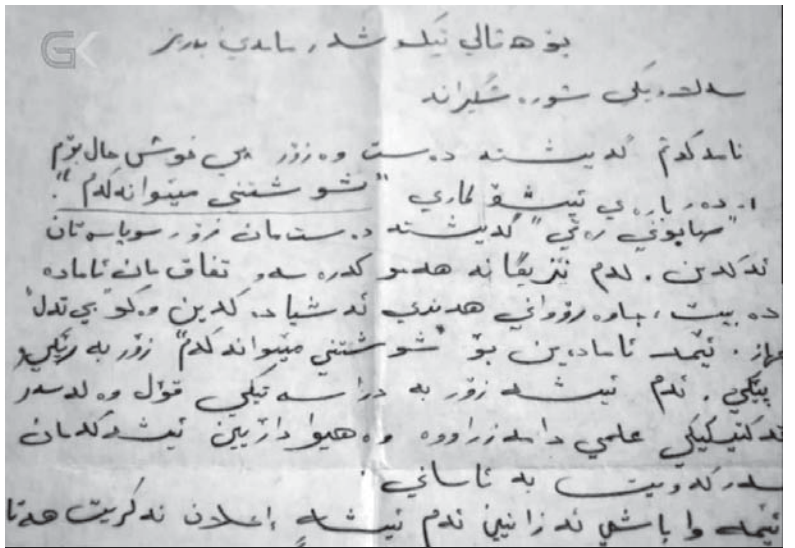 GK
بۆ هه‌ڤالی تیکۆشەر مامەی بەرێز
سلاوێکی شورەشگێرانە
نامەکەتم گەیشتە دەست وە زۆر پیی خوش حال بۆم
دەربارەی ئیشۆکاری "شوشتنی میوانەکەم".
"صابونی رەقی" گەیشتە دەستمان زۆر سوپاستان
ئەکەین. لەم نزیکانە هەموکەرەسەو تفاقمان ئامادە
دەبیت، چاوەرۆوانی هەندی ئەشیا دەکەین وەکو بی تەل
جهاز. ئیمە ئامادەین بۆ "شوشتنی میوانەکەم" زۆر بە ریکی
پیکی. ئەم ئیشە زۆر بە دراسەتیکی قۆل وە لەسەر
تەکتیکیکی علمی دامەزراووە وە هیوادارین ئیشەکەمان
سەرکەویت بە ئاسانی.
ئیمە وا باشی ئەزانین ئەم ئیشە إعلان نەکریت هەتا